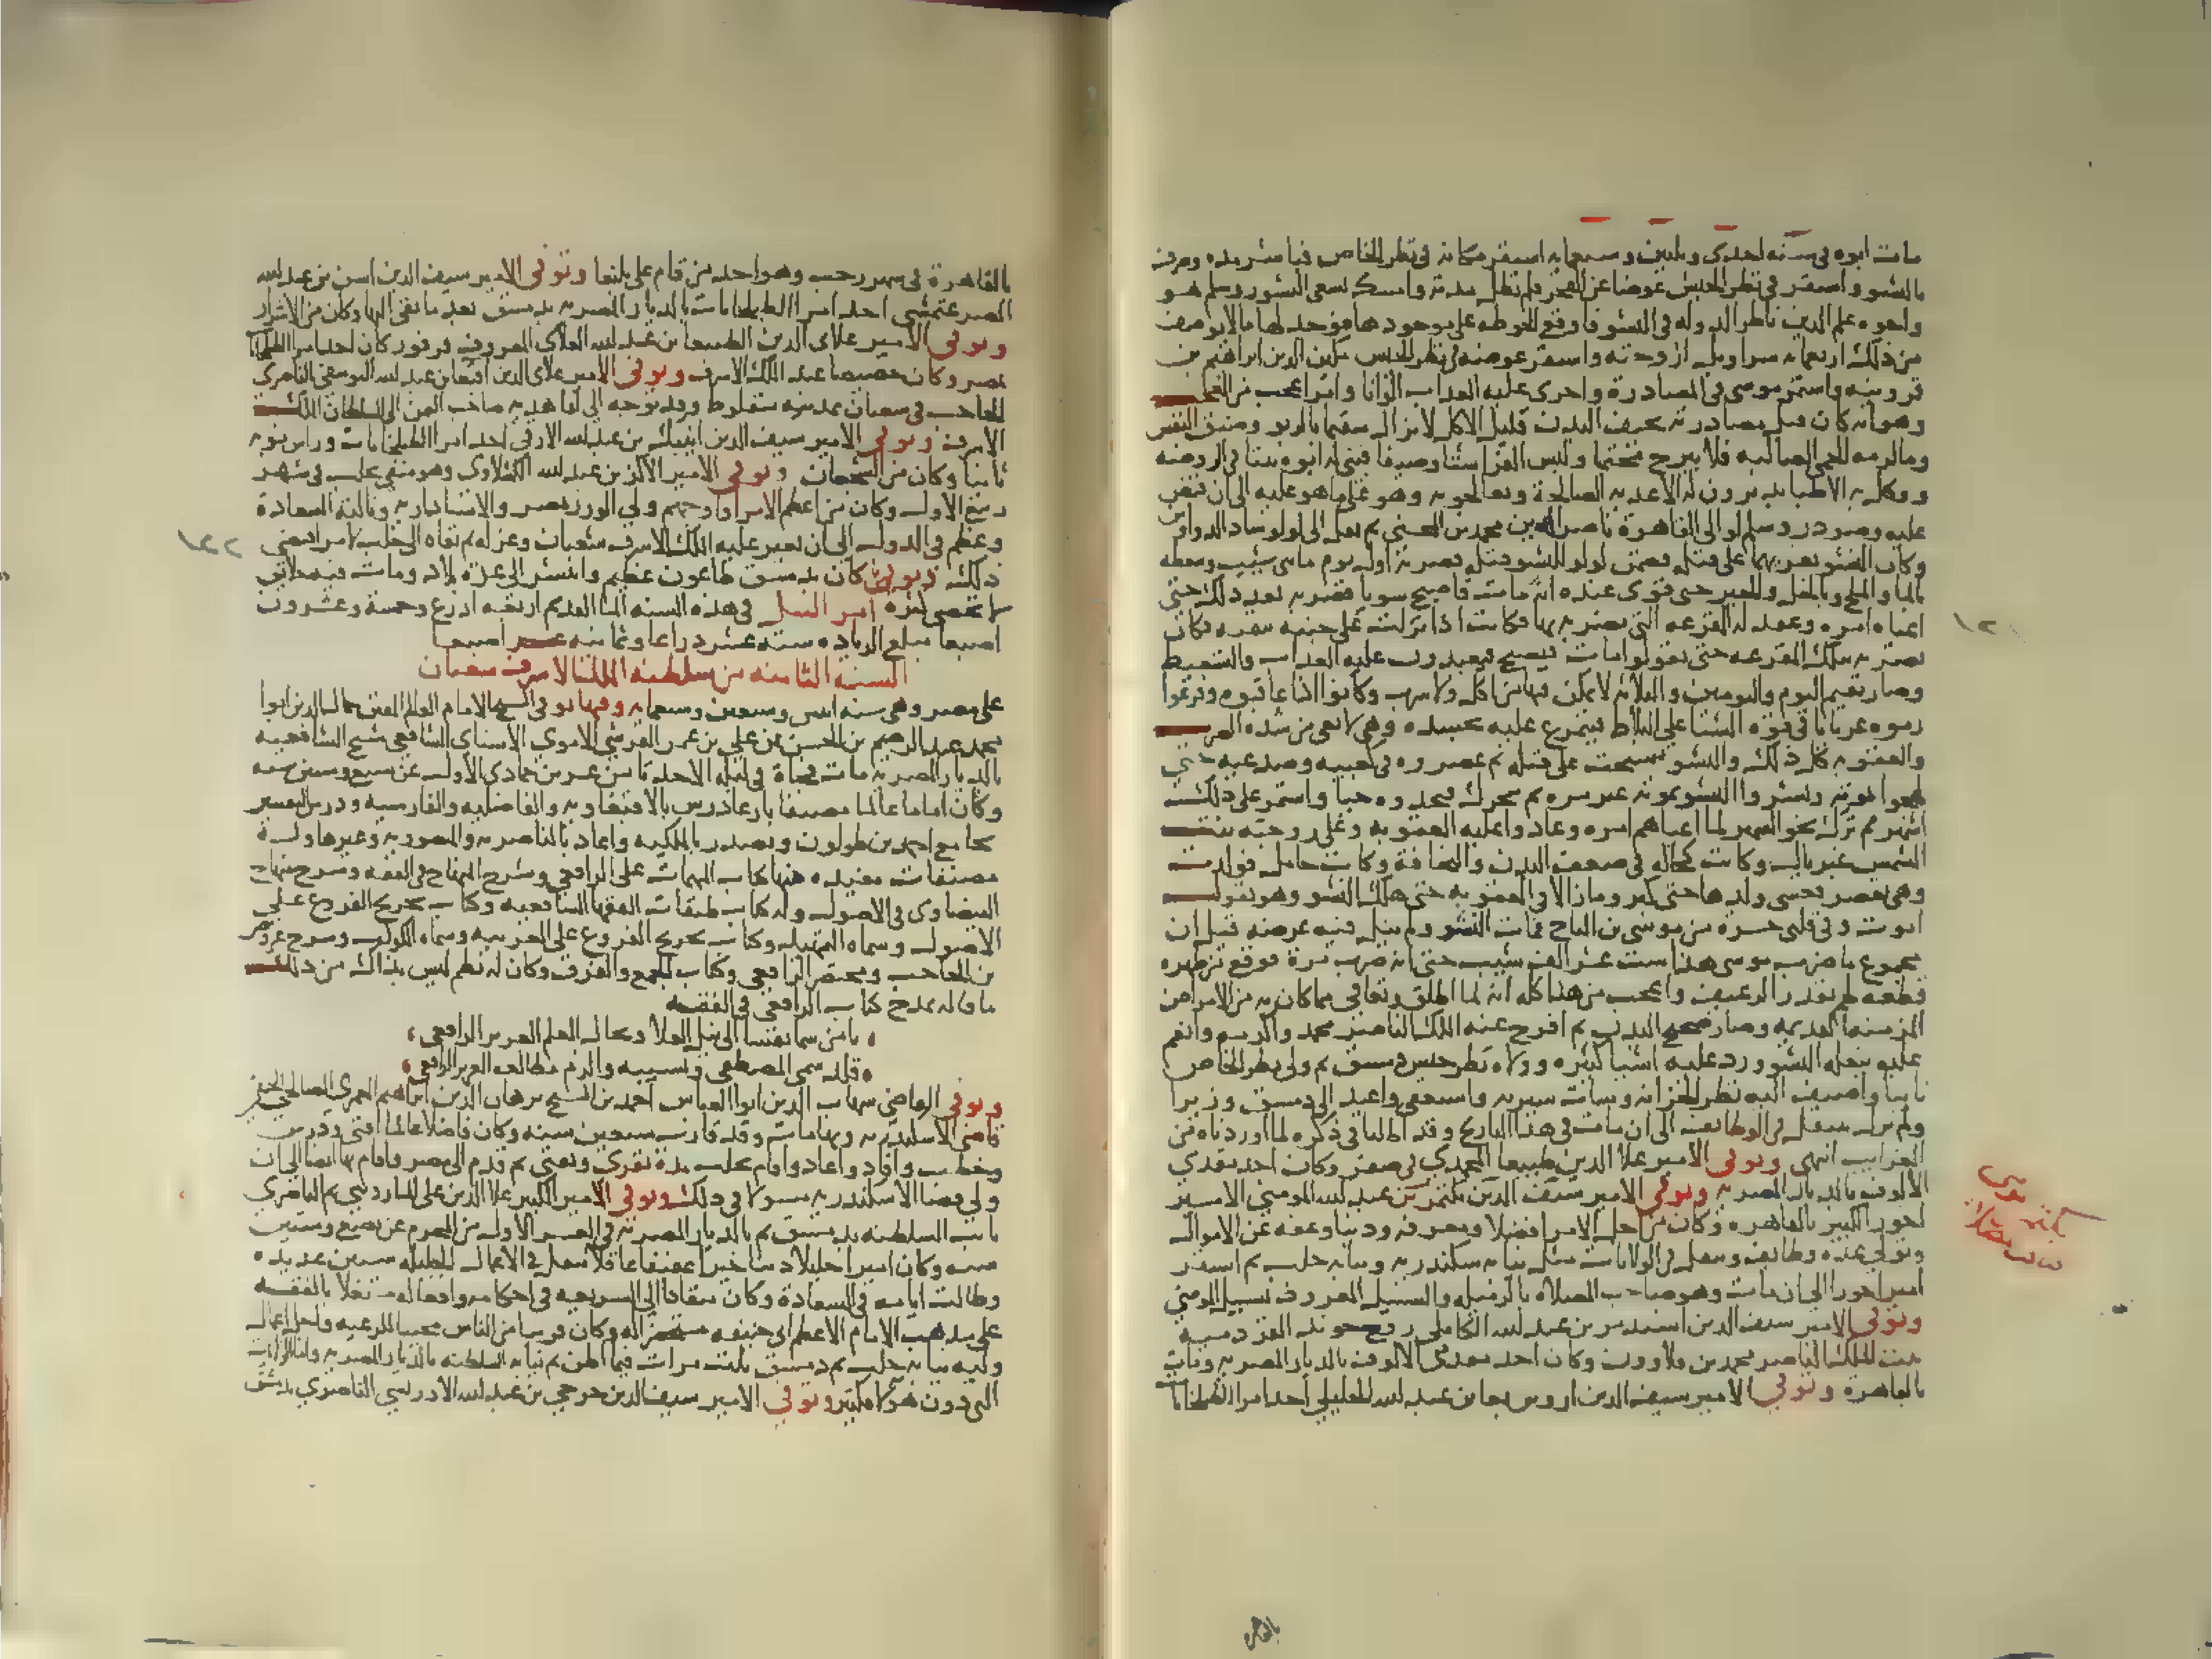 مات ابوه في سنه احدى وثلثين وسبعمايه استقر مكانه في نظر الخاص فباشر مده وصرف
بالنشو واستقر في نظر الجيش عوضا عن الفخر فلم تطل مدته وامسك بسعي النشو وسلم هو
واخوه علم الدين ناظر الدوله في النشو فاوقع الحوطه على موجودهما فوجد لهما ما لا يوصف
من ذلك اربعمايه سراويل لزوجته واستقر عوضه في نظر الجيش مكين الدين ابراهيم بن
قروينه واستمر موسى في المصادرة واجرى عليه العذاب الوانا وامرا عجب من العجب
وهو انه كان قبل مصادرته نحيف البدن قليل الاكل لا يزال سقيما بالربو وضيق النفس
ومالرمه الحمى الصالبه فلا يبرح محتميا ولبس الفرا شتا وصيفا فبنى له ابوه بيتا في الروضه
ووكل به الاطبا يدبرون له الاغديه الصالحة ويعالجونه وهو على ما هو عليه الى ان قبض
عليه وصودر وسلم لوالي القاهرة ناصر الدين محمد بن المحسني ثم نقل الى لولو شاد الدواوين
وكان النشو يغريهما على قتله فضمن لولو للنشو قتله فضربه اول يوم مايتي شيب وسعطه
بالما والملح وبالخل والجير حتى قوى عنده انه مات فاصبح سويا فضربه بعد ذلك حتى
اعياه امره وعمد له المقرعه التي يضربه بها فكانت اذا نزلت على جنبه تنقبه فكان
يضربه بتلك المقرعه حتى يقولوا مات فيصبح فيعيدون عليه العذاب والتسعيط
وصار يقيم اليوم واليومين والثلاثه لا يمكن فيها من اكل ولا شرب وكانوا اذا عاقبوه وفرغوا
رموه عريانا في قوة الشتا على البلاط فيتمرغ عليه بجسده وهو لا يعي من شده الضرب
والعقوبه كل ذلك والنشو يستحث على قتله ثم عصروه في كعبيه وصدغيه حتى
لهجوا بموته وبشروا النشو بموته غير مره ثم يتحرك فيجدوه حيا واستمر على ذلك
اشهر ثم ترك نحو الشهر لما اعياهم امره وعادوا عليه العقوبه وعلى زوجته بنت
الشمس غبريال وكانت كحاله في ضعف البدن والنحافة وكانت حامل فولدت
وهي تعصر فعسى ولدها حتى كبر وما زالا في العقوبه حتى هلك النشو وهو يقول
اموت وفي قلبي حسرة من موسى بن التاج فمات النشو ولم ينل فيه غرضه قيل ان
مجموع ما ضرب موسى هذا ست عشر الف شيب حتى انه ضرب مرة فوقع من ظهره
قطعه لحم بقدر الرغيف واعجب من هذا كله انه لما اطلق وتعافى مما كان به من الامراض
المزمنه القديمه وصار صحيح البدن ثم افرج عنه الملك الناصر محمد واكرمه وانعم
عليه ببغله النشو ورد عليه اشيا كثيره وولاه نظر جيش دمشق ثم ولي نظر الخاص
ثانيا واضيف اليه نظر الخزانه وسات سيرته واستعفى واعيد الى دمشق وزيرا
ولم يزل يتنقل في الوظايف الى ان مات في هذا التاريخ وقد اطلنا في ذكره لما اوردناه من
الغرايب انتهى وتوفى الامير علا الدين طيبغا المحمدي في صفر وكان احد مقدمي
الالوف بالديار المصريه وتوفي الامير سيف الدين بكتمر بن عبد الله المومني الامير
اخور الكبير بالقاهره وكان من اجل الامرا فضلا ومعرفه ودينا وعفه عن الاموال
وتولى عده وظايف وتنقل في الولايات مثل نيابه سكندريه ونيابه حلب ثم استقر
امير اخورا الى ان مات وهو صاحب المصلاه بالرميله والسبيل المعروف بسبيل المومني
وتوفي الامير سيف الدين اسندمر بن عبد الله الكاملي زوج خوند القردميه
بنت الملك الناصر محمد بن قلاوون وكان احد مقدمي الالوف بالديار المصريه وبات
بالقاهرة وتوفي الامير سيف الدين اروس بغا بن عبد الله الخليلي احد امرا الطبلخانات
بالقاهرة في شهر رجب وهو احد من قام على يلبغا وتوفي الامير سيف الدين اسن بن عبد الله
الصرغتمشي احد امرا الطبلخانات بالديار المصريه بدمشق بعد ما نفي اليها وكان من الاشرار
وتوفى الامير علاى الدين الطنبغا بن عبد الله العلاى المعروف فرفور كان احد امرا الطبلخانات
بمصر وكان خصيصا عند الملك الاشرف وتوفى الامير علاى الدين اقبغا بن عبد الله اليوسفي الناصري
الحاجب في شعبان بمدينه منفلوط وقد توجه الى لقا هديه صاحب اليمن الى السلطان الملك
الاشرف وتوفي الامير سيف الدين اينبك بن عبد الله الازقي احد امرا الطبلخانات وراس نوبه
ثانيا وكان من الشجعان وتوفي الامير الاكز بن عبد الله الكشلاوي وهو منفي بحلب في شهر
ربيع الاول وكان من اعظم الامرا واوجههم ولي الوزر بمصر والاستاداريه ونالته السعادة
وعظم في الدوله الى ان تغير عليه الملك الاشرف شعبان وعزله ثم نفاه الى حلب لامر اقتضى
ذلك وفيها كان بدمشق طاعون عظيم وانتشر الى عدة بلاد ومات فيه خلايق
لا تحصى كثره امر النيل في هذه السنه الما القديم اربعه اذرع وخمسة وعشرون
اصبعا مبلغ الزياده سته عشر ذراعا وثمانيه عشر اصبعا
السنة الثامنه من سلطنه الملك الاشرف شعبان
على مصر وهي سنه اثنين وسبعين وسبعمايه وفيها توفي الشيخ الامام العالم المفنن جمال الدين ابوا
محمد عبد الرحيم بن الحسن بن علي بن عمر القرشي الاموي الاسناي الشافعي شيخ الشافعيه
بالديار المصريه مات فجاة في ليله الاحد ثامن عشرين جمادى الاول عن سبع وستين سنه
وكان اماما عالما مصنفا بارعا درس بالاقبغاويه والفاضليه والفارسيه ودرس التفسير
بجامع احمد بن طولون وتصدر بالملكيه واعاد بالناصريه والمنصوريه وغيرها وله
مصنفات مفيده منها كتاب المهمات على الرافعي وشرح المنهاج في الفقه وشرح منهاج
البيضاوي في الاصول وله كتاب طبقات الفقها الشافعيه وكتاب تخريج الفروع على
الاصول وسماه التمهيد وكتاب تخريج الفروع على العربيه وسماه الكوكب وشرح عروض
بن الحاجب ومختصر الرافعي وكتاب الجمع والفرق وكان له نظم ليس بذاك من ذلك
ما قاله يمدح كتاب الرافعي في الفقه
يا من سما نفسا الى نيل العلا ونحا الى العلم الغزير الرافعي
قلد سمي المصطفى ونسيبه والزم مطالعه العزيز الرافعي
وتوفي القاضي شهاب الدين ابوا العباس احمد بن الشيخ برهان الدين ابراهيم العمري الصالحي الحنفي
قاضي الاسكندريه وبها مات وقد قارب سبعين سنه وكان فاضلا عالما افتى ودرس
وخطب وافاد واعاد واقام بحلب مدة يقرى ويفتي ثم قدم الى مصر واقام بها ايضا الى ان
ولي قضا الاسكندريه مسولا في ذلك وتوفي الامير الكبير علا الدين علي المارديني ثم الناصري
نايب السلطنه بدمشق ثم بالديار المصريه في العشر الاول من المحرم عن بضع وستين
سنه وكان اميرا جليلا دينا خيرا عفيفا عاقلا تنقل في الاعمال الجليله سنين عديده
وطالت ايامه في السعادة وكان منقادا الى الشريعه في احكامه وافعاله مشتغلا بالفقه
على مذهب الامام الاعظم ابي حنيفه مستحضرا له وكان قريبا من الناس محببا للرعيه واجل اعماله
وليه نيابه حلب ثم دمشق ثلث مرات فيما اظن ثم نيابه السلطنه بالديار المصريه واما الولايات
التي دون هولا فكثير وتوفي الامير سيف الدين جرجي بن عبد الله الادريسي الناصري بدمشق
بالقاهره